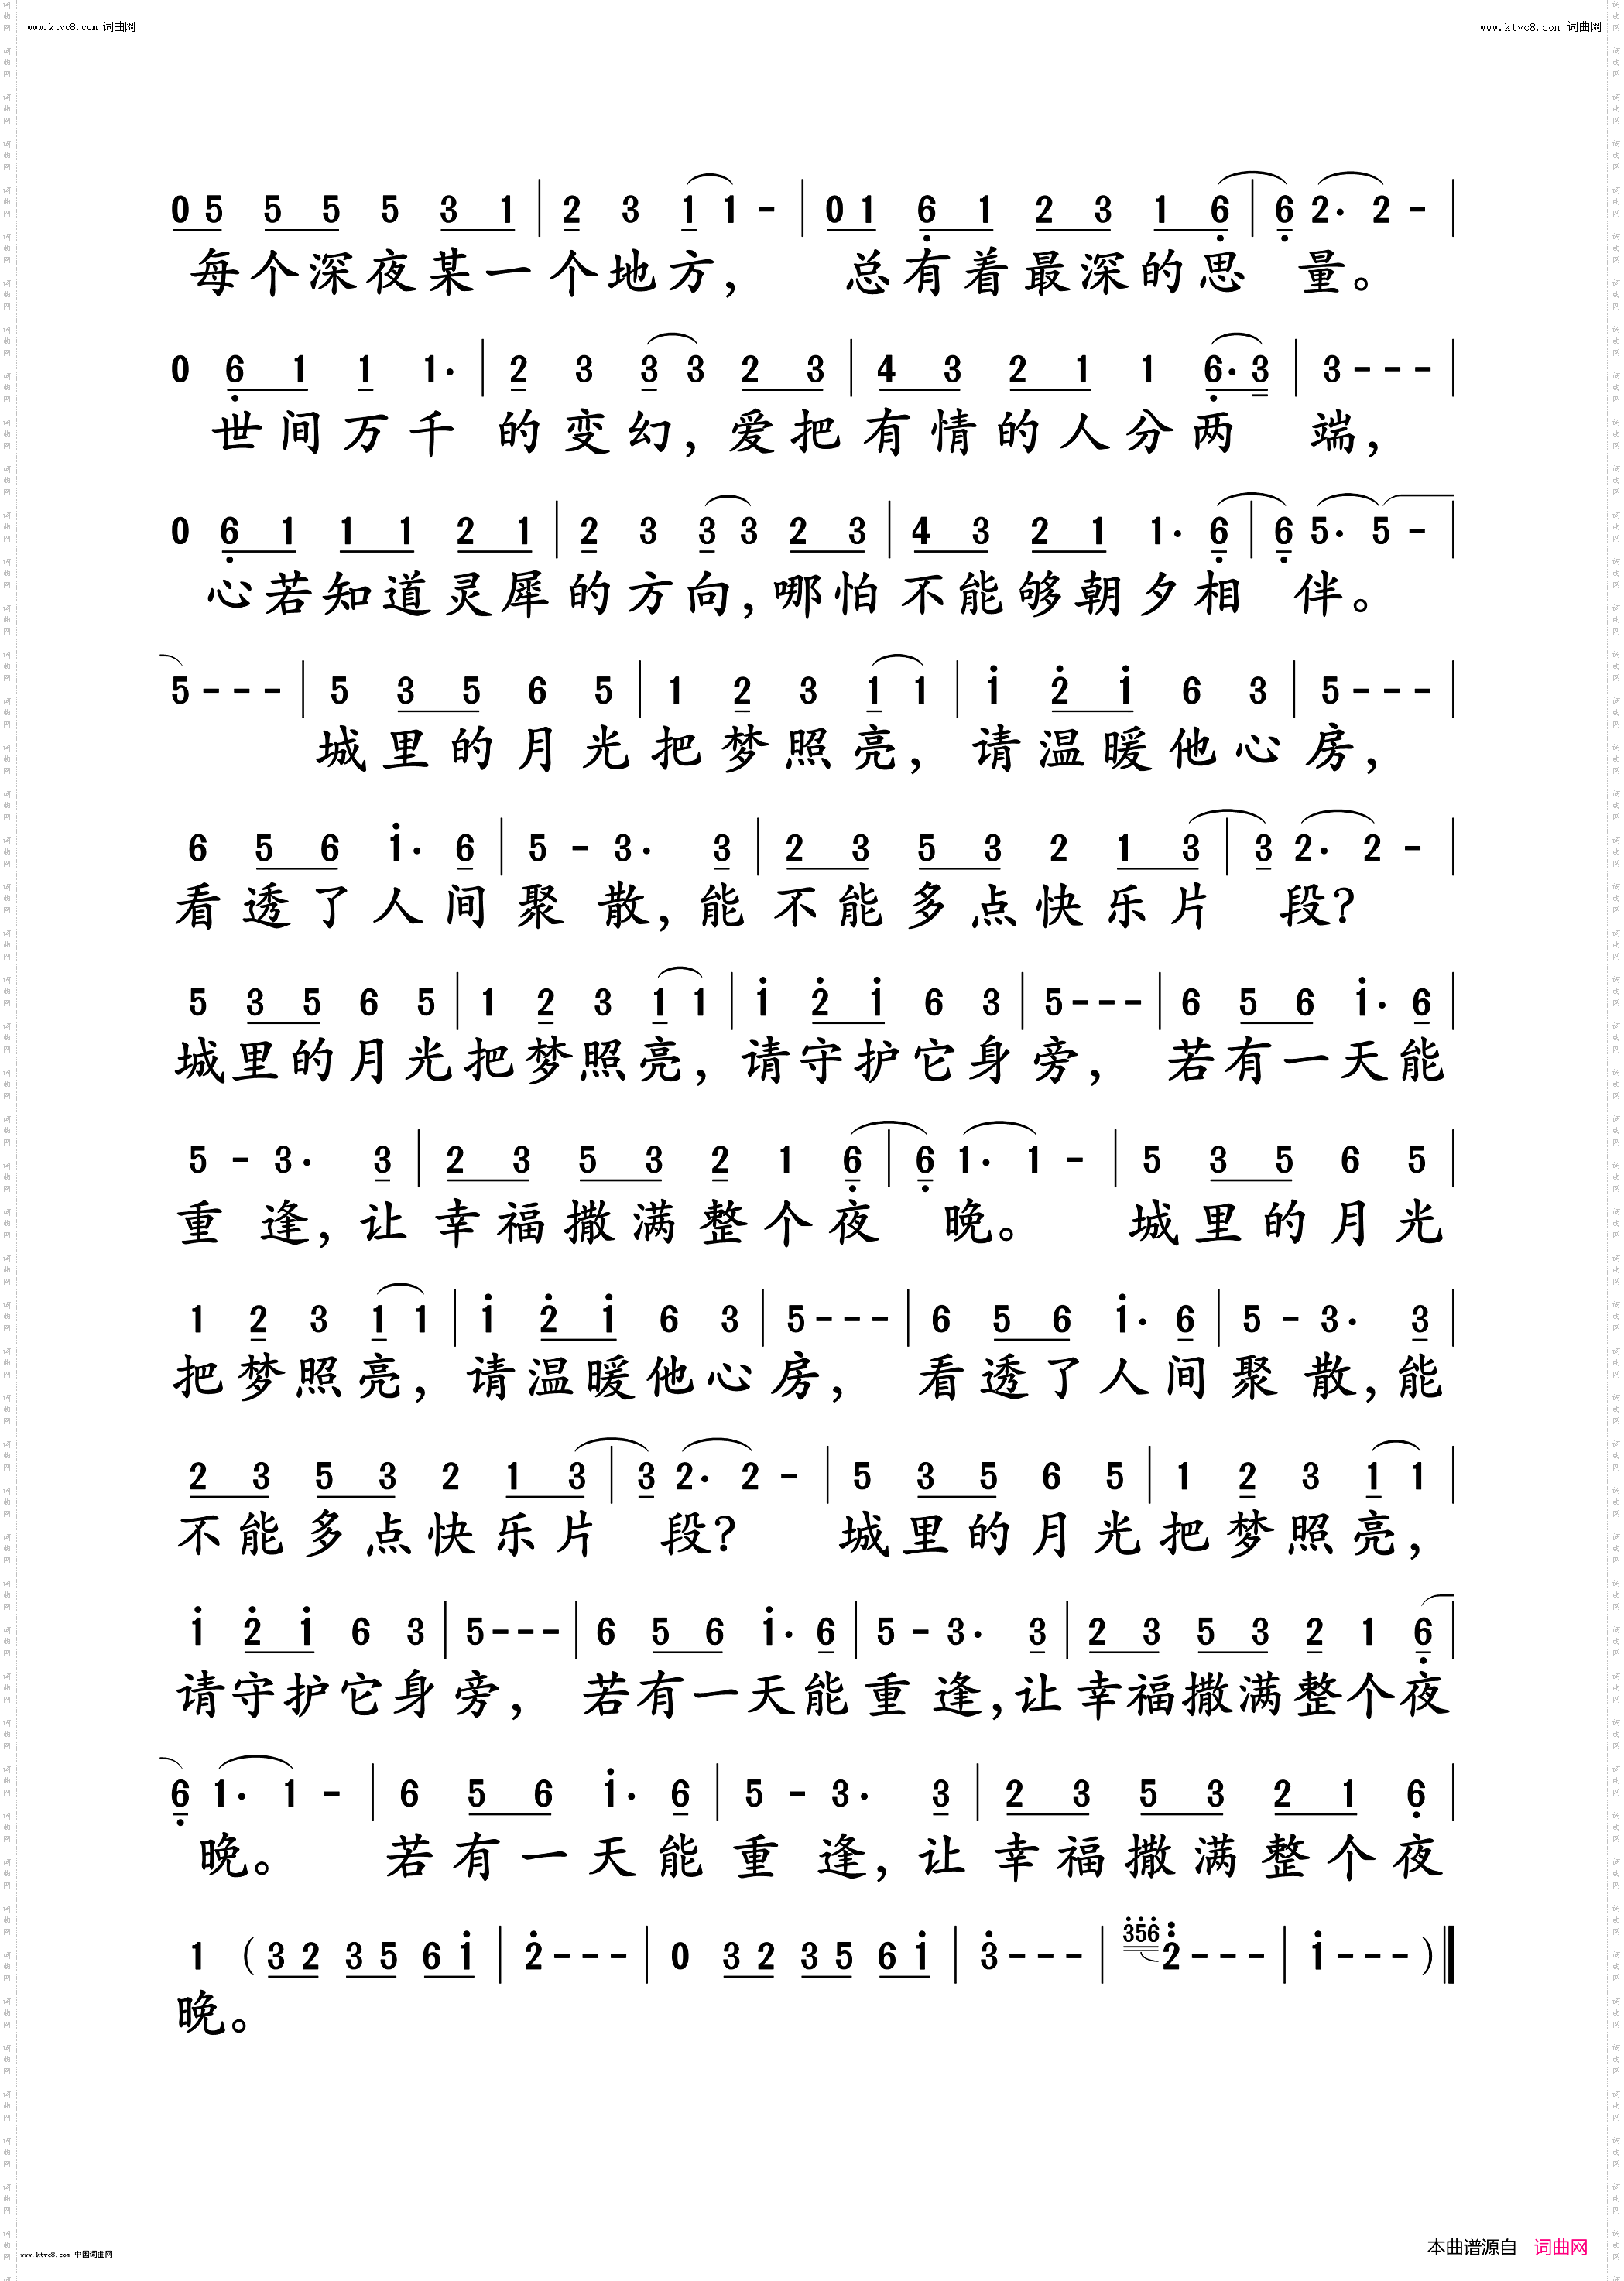 www.ktvc8.com 词曲网
www.ktvc8.com 词曲网
0 5 5 5 5 3 1 | 2 3 1 1 - | 0 1 6 1 2 3 1 6 | 6 2· 2 - |
每个深夜某一个地方， 总有着最深的思 量。
0 6 1 1 1· | 2 3 3 3 2 3 | 4 3 2 1 1 6· 3 | 3 - - - |
世间万千的变幻，爱把有情的人分两 端，
0 6 1 1 1 2 1 | 2 3 3 3 2 3 | 4 3 2 1 1· 6 | 6 5· 5 - |
心若知道灵犀的方向，哪怕不能够朝夕相 伴。
5 - - - | 5 3 5 6 5 | 1 2 3 1 1 | 1 2 1 6 3 | 5 - - - |
城里的月光把梦照亮，请温暖他心房，
6 5 6 1· 6 | 5 - 3· 3 | 2 3 5 3 2 1 3 | 3 2· 2 - |
看透了人间聚 散，能不能多点快乐片 段？
5 3 5 6 5 | 1 2 3 1 1 | 1 2 1 6 3 | 5 - - - | 6 5 6 1· 6 |
城里的月光把梦照亮，请守护它身旁， 若有一天能
5 - 3· 3 | 2 3 5 3 2 1 6 | 6 1· 1 - | 5 3 5 6 5 |
重 逢，让幸福撒满整个夜 晚。 城里的月光
1 2 3 1 1 | 1 2 1 6 3 | 5 - - - | 6 5 6 1· 6 | 5 - 3· 3 |
把梦照亮，请温暖他心房， 看透了人间聚 散，能
2 3 5 3 2 1 3 | 3 2· 2 - | 5 3 5 6 5 | 1 2 3 1 1 |
不能多点快乐片 段？ 城里的月光把梦照亮，
1 2 1 6 3 | 5 - - - | 6 5 6 1· 6 | 5 - 3· 3 | 2 3 5 3 2 1 6 |
请守护它身旁， 若有一天能重 逢，让幸福撒满整个夜
6 1· 1 - | 6 5 6 1· 6 | 5 - 3· 3 | 2 3 5 3 2 1 6 |
晚。 若有一天能重 逢，让幸福撒满整个夜
1 （3 2 3 5 6 1 | 2 - - - | 0 3 2 3 5 6 1 | 3 - - - | 356 2 - - - | 1 - - - ）
晚。
www.ktvc8.com 中国词曲网
本曲谱源自 词曲网